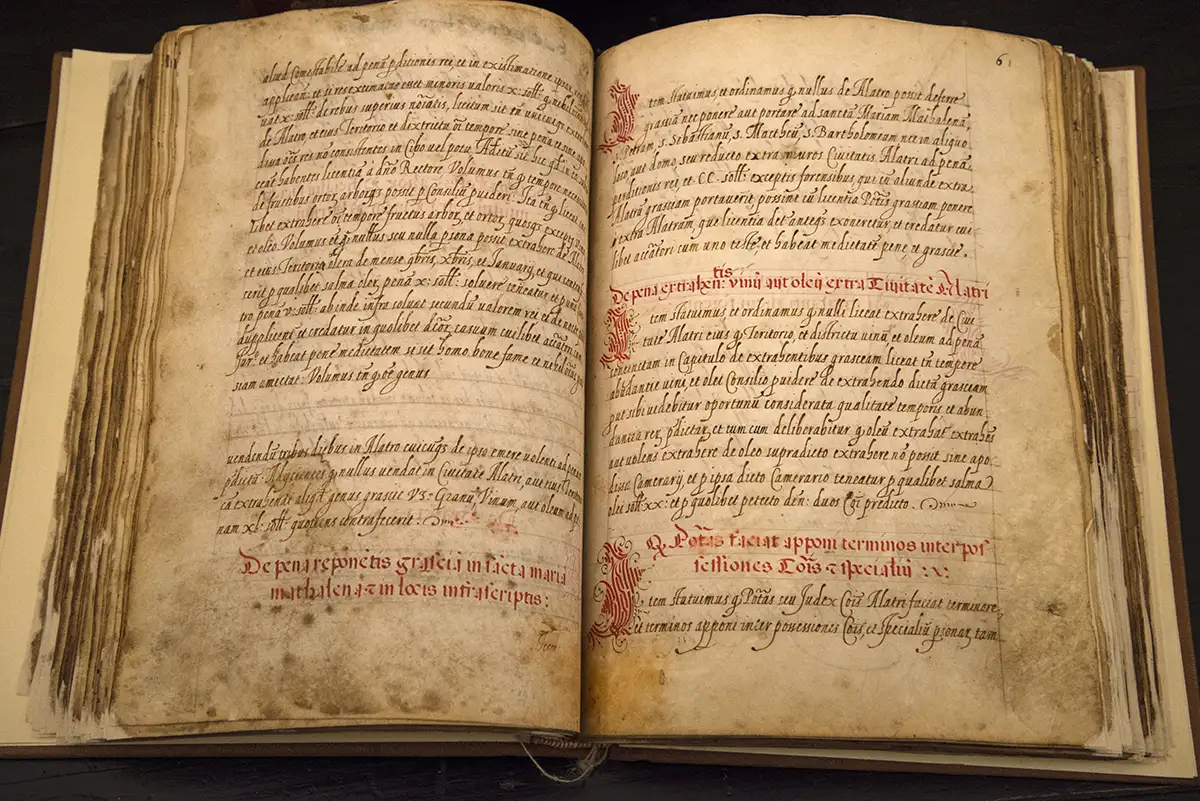 aliud comestibile ad penã pditionis rei, et in existimatione ipsar
applicañ, et si res extimatae esset minoris valoris x: soll:
uat x: soll: de rebus superius notatis, licitum sit eñ unicuiq, extra
de Alatro, et eius Teritorio et districtu oĩ tempore sine pena et sine
dova oẽs res nõ consistentes in Cibo vel potu. Aditũ sit hic qd in
ceae habentes licentiã a dño Rectore. Volumus tñ q tempore
de fructibus ortor, arborũq possit p Consiliũ puideri. Ita tñ q liceat
libet extrahere oĩ tempore fructus arbor, et ortor, quosq excepto
et oleo. Volumus et q nullus seu nulla psona possit extrahere de Alatro
et eius Teritorio olera de mense 9bris, xbris, et Januarij, et qui
cerit p qualibet salma oler, penã x: soll: soluere teneatur et
tro, penã v: soll: abinde infra soluat secundũ valorem rei et de nocte
duplicent et credatur in quolibet dictor, casuum cuilibet accãtori cum
jur: et habeat pene medietatem si sit homo bone fame et
siam amictat: Volumus tñ q oẽ genus
uendendũ tribus diebus in Alatro cuicuq de ipso emere volenti ad penã
pdictã. Adijcientes q nullus vendat in Ciuitate Alatri, aut eius Teritorio
ca extrahendi aliqd genus grascie vs= Granũ, Vinum, aut oleum ad pe
nam xl: soll: quotiens contrafecerit:
De pena reponẽtis grasciã in sãcta maria
mathalena et in locis infrascriptis:
Item
61
Item statuimus, et ordinamus q nullus de Alatro possit deferre
grasciã nec ponere aut portare ad sanctã Mariam Mathalenã,
s. Petram, s. Sebastianũ, s. Matheũ, s. Bartholomeum nec in aliquo
loco, aut domo, seu reducto extra muros Ciuitatis Alatri ad penã
perditionis rei, et CC. soll: exceptis forensibus qui cũ aliunde extra
Alatrũ grasceam portauerint, possint cũ licentia Põtis grasceam ponere
extra Alatrum, que licentia det anteq exoneretur, et credatur cui
libet accãtori cum uno teste, et habeat medietatẽ penę et grascie.
De pena extrahentis: vinũ aut oleũ extra Ciuitatẽ Alatri
Item statuimus, et ordinamus q nulli liceat extrahere de Ciui
tate Alatri eiusq Teritorio, et districtu uinũ et oleum ad penã
contentam in Capitulo de extrahentibus grasceam liceat tñ tempore
abudantie uini, et olei Consilio puidere de extrahendo dictã grasceam
put sibi uidebitur oportunũ considerata qualitate temporis et abun
dantia rer, pdictar, et tum cum deliberabitur q oleũ extrahat extrahẽs
aut volens extrahere de oleo supradicto extrahere nõ possit sine apo
dassa Camerarij, et p ipsa dicto Camerario teneatur p qualibet salma
olei soll: xx: et p quolibet petecto den: duos Coi predicto.
Q Potãs faciat apponi terminos inter pos
sessiones Cõis et specialiũ : v:
Item statuimus q Potãs seu Judex Cõis Alatri faciat terminare,
et terminos apponi inter possessiones Cõis, et specialiũ psonar, tam